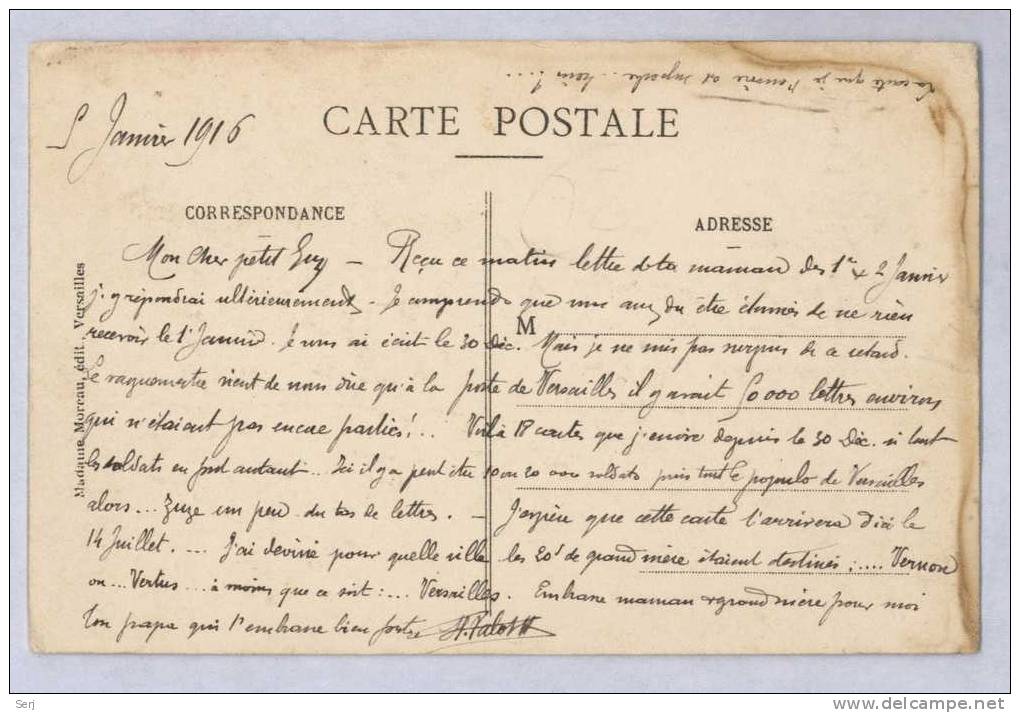 La carte que je t'envoie est superbe.. hein!....
5 Janvier 1916
CARTE POSTALE
CORRESPONDANCE
ADRESSE
M
Madame Moreau, édit., Versailles
Mon cher petit Guy — Reçu ce matin lettre de ta maman des 1er & 2 Janvier
j'y répondrai ultérieurement. Je comprends que vous ayez du être étonnés de ne rien
recevoir le 1er Janvier. Je vous ai écrit le 30 Déc. Mais je ne suis pas surpris de ce retard.
Le vaguemestre vient de nous dire qu'à la poste de Versailles il y avait 50 000 lettres environ
qui n'étaient pas encore parties!.. Voilà 18 cartes que j'envoie depuis le 30 Déc. si tout
les soldats en font autant.. Ici il y a peut être 10 ou 20 000 soldats puis tout le populo de Versailles
alors... Zuze un peu du tas de lettres. — J'espère que cette carte t'arrivera d'ici le
14 Juillet. ... J'ai deviné pour quelle ville les 20s de grand mère étaient destinés:.... Vernon
ou... Vertus... à moins que ce soit:... Versailles. Embrasse maman & grand mère pour moi
Ton papa qui t'embrasse bien fort
Serj
www.delcampe.net